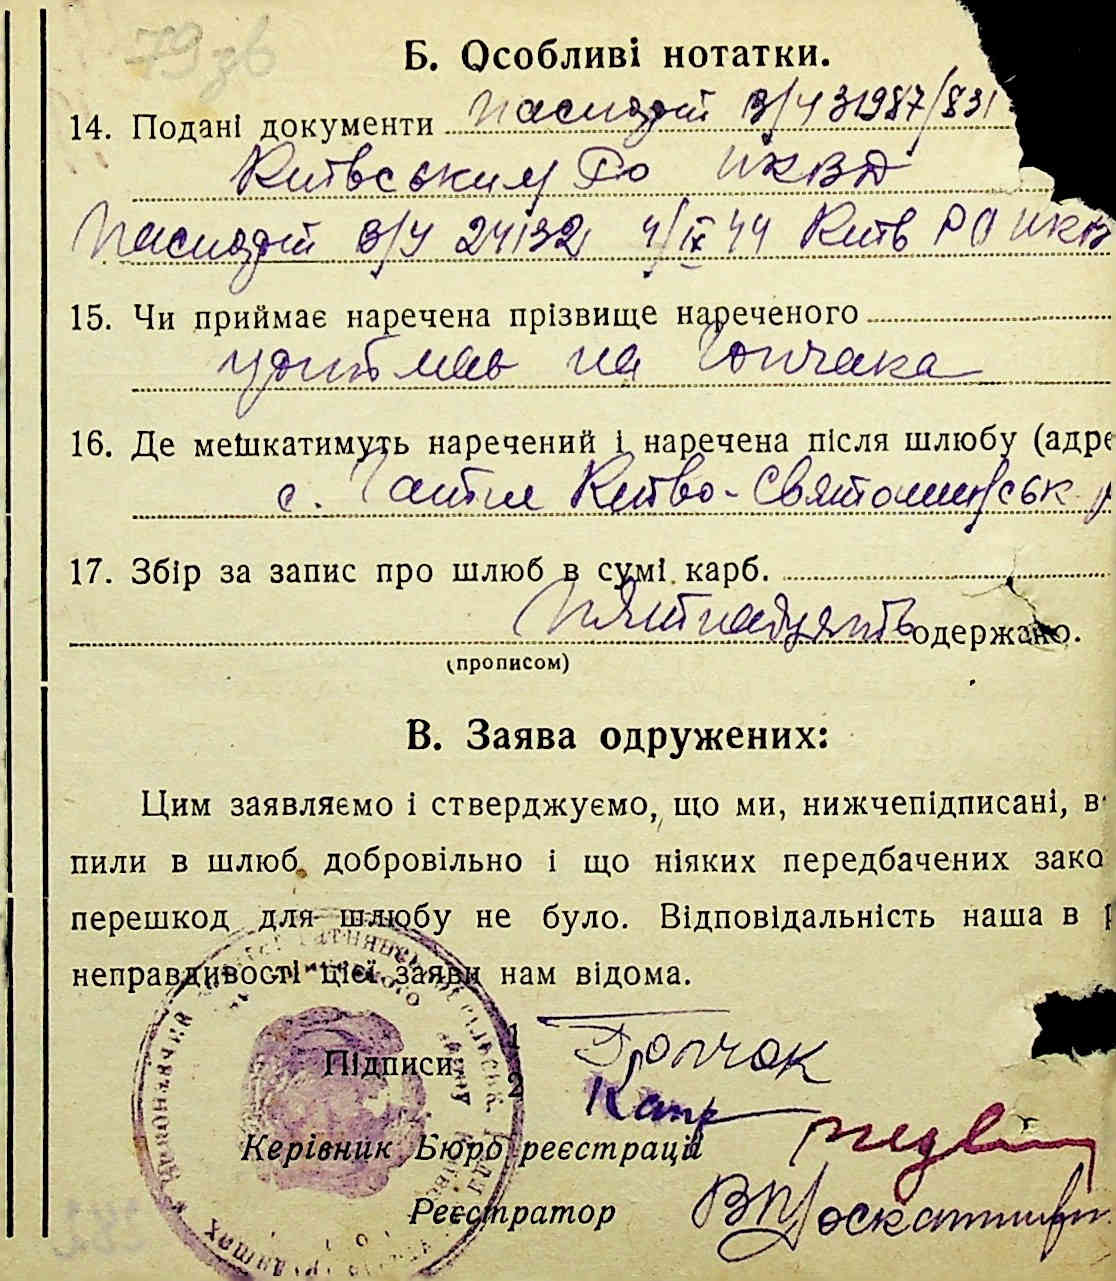 79 зв
Б. Особливі нотатки.
14. Подані документи Паспорт В/Ч 31987/831
Київським Ро НКВД
Паспорт В/Ч 24132 4/IX 44 Київ РО НКВ
15. Чи приймає наречена прізвище нареченого
на Гончака
16. Де мешкатимуть наречений і наречена після шлюбу (адре
с. Гатне Києво-Святошинськ р
17. Збір за запис про шлюб в сумі карб.
Пятнадцять одержано.
(прописом)
В. Заява одружених:
Цим заявляємо і стверджуємо, що ми, нижчепідписані, в
пили в шлюб добровільно і що ніяких передбачених зако
перешкод для шлюбу не було. Відповідальність наша в р
неправдивості цієї заяви нам відома.
1
Підписи
2
Керівник Бюро реєстрації
Реєстратор